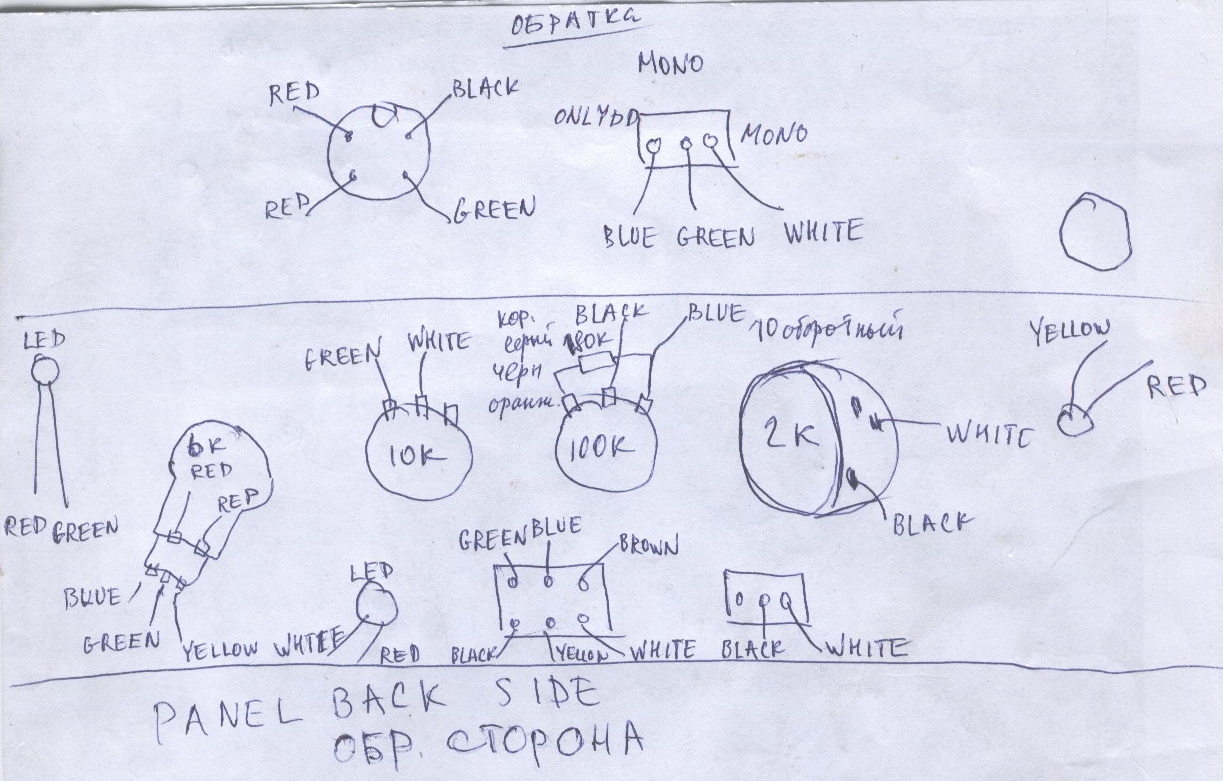 ОБРАТКА
MONO
RED
BLACK
ONLY DD
MONO
RED
GREEN
BLUE GREEN WHITE
LED
GREEN
WHITE
кор.
серый
черн
оранж.
180K
BLACK
BLUE
10 оборотный
YELLOW
RED
6K
RED
RED
10K
100K
2K
WHITE
BLACK
RED GREEN
BLUE
GREEN
YELLOW
LED
WHITE
RED
GREEN BLUE
BROWN
BLACK
YELLOW
WHITE
BLACK
WHITE
PANEL BACK SIDE
ОБР. СТОРОНА